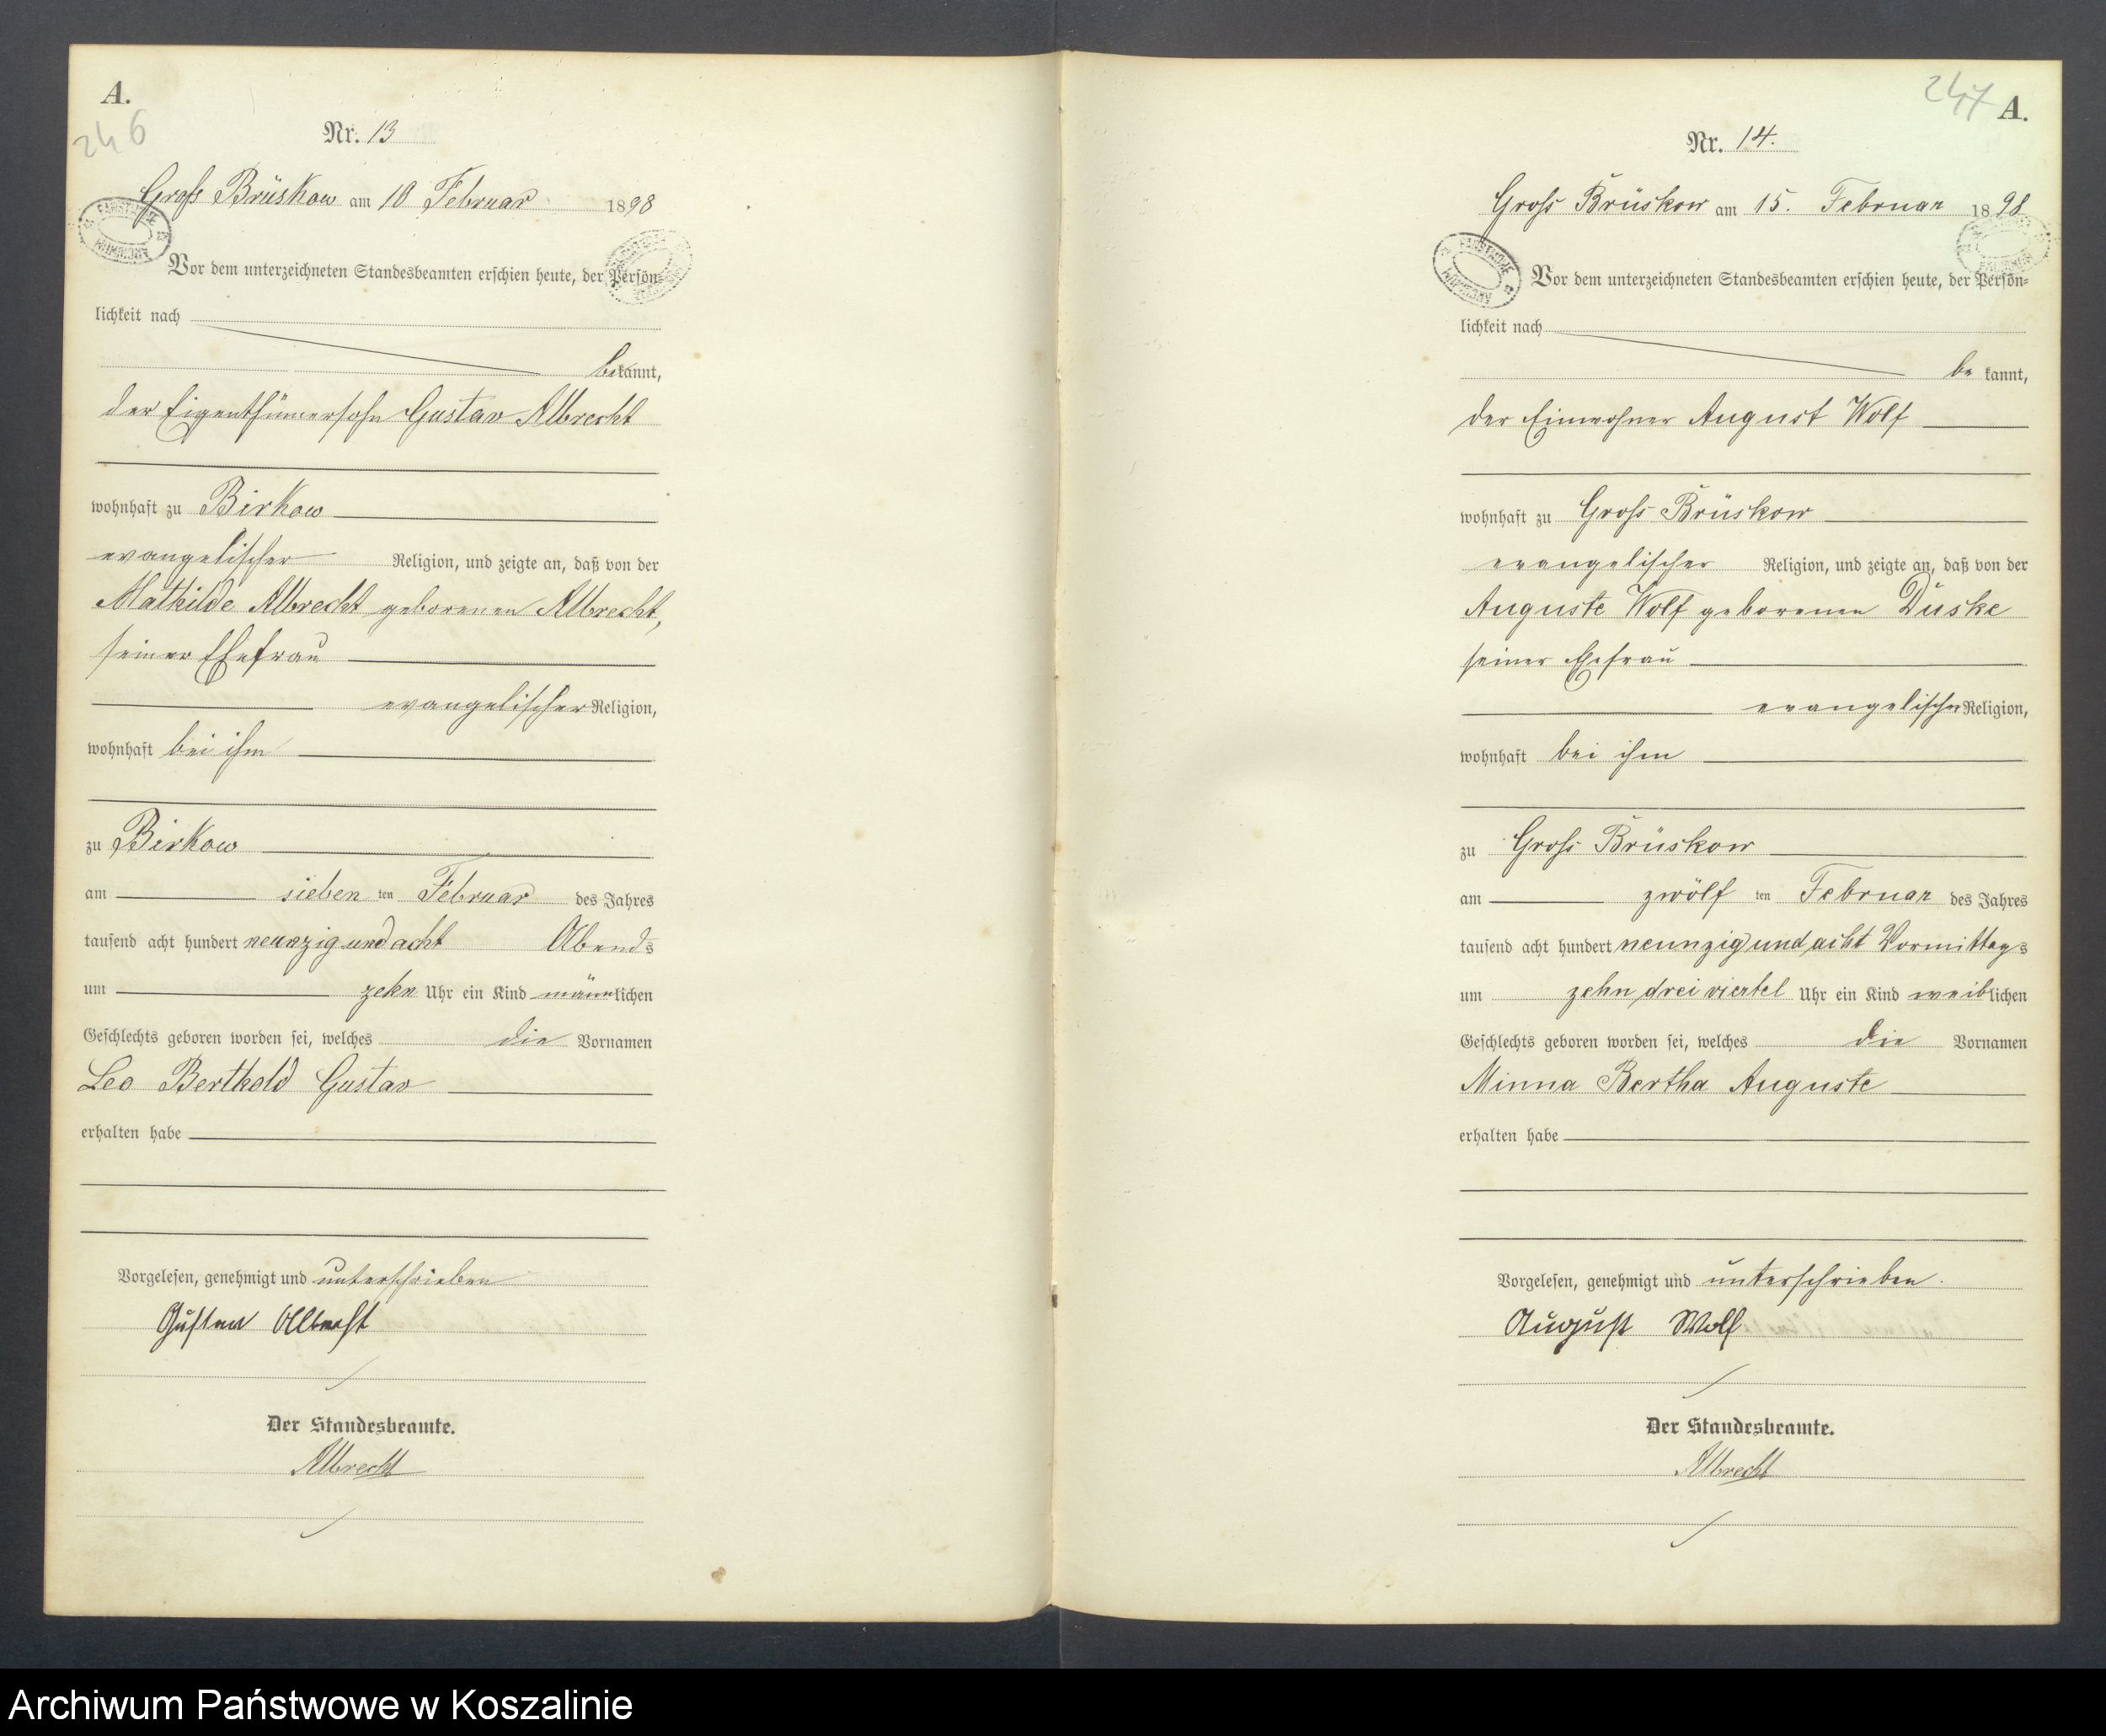 A.
246
Nr. 13
Gross Brüskow am 10 Februar 1898
Vor dem unterzeichneten Standesbeamten erschien heute, der Persön-
lichkeit nach
bekannt,
der Eigenthümersohn Gustav Albrecht
wohnhaft zu Birkow
evangelischer Religion, und zeigte an, daß von der
Mathilde Albrecht geborenen Albrecht,
seiner Ehefrau
evangelischer Religion,
wohnhaft bei ihm
zu Birkow
am sieben ten Februar des Jahres
tausend acht hundert neunzig und acht Abends
um zehn Uhr ein Kind männlichen
Geschlechts geboren worden sei, welches die Vornamen
Leo Berthold Gustav
erhalten habe
Vorgelesen, genehmigt und unterschrieben
Gustav Albrecht
Der Standesbeamte.
Albrecht
247
A.
Nr. 14.
Gross Brüskow am 15. Februar 1898
Vor dem unterzeichneten Standesbeamten erschien heute, der Persön-
lichkeit nach
be kannt,
der Einwohner August Wolf
wohnhaft zu Gross Brüskow
evangelischer Religion, und zeigte an, daß von der
Auguste Wolf geborenen Duske
seiner Ehefrau
evangelischer Religion,
wohnhaft bei ihm
zu Gross Brüskow
am zwölf ten Februar des Jahres
tausend acht hundert neunzig und acht Vormittags
um zehn drei viertel Uhr ein Kind weiblichen
Geschlechts geboren worden sei, welches die Vornamen
Minna Bertha Auguste
erhalten habe
Vorgelesen, genehmigt und unterschrieben.
August Wolf
Der Standesbeamte.
Albrecht
Archiwum Państwowe w Koszalinie